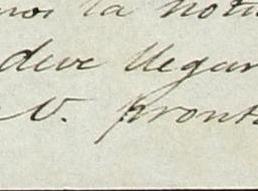 la noti
deve llegar
V. pront